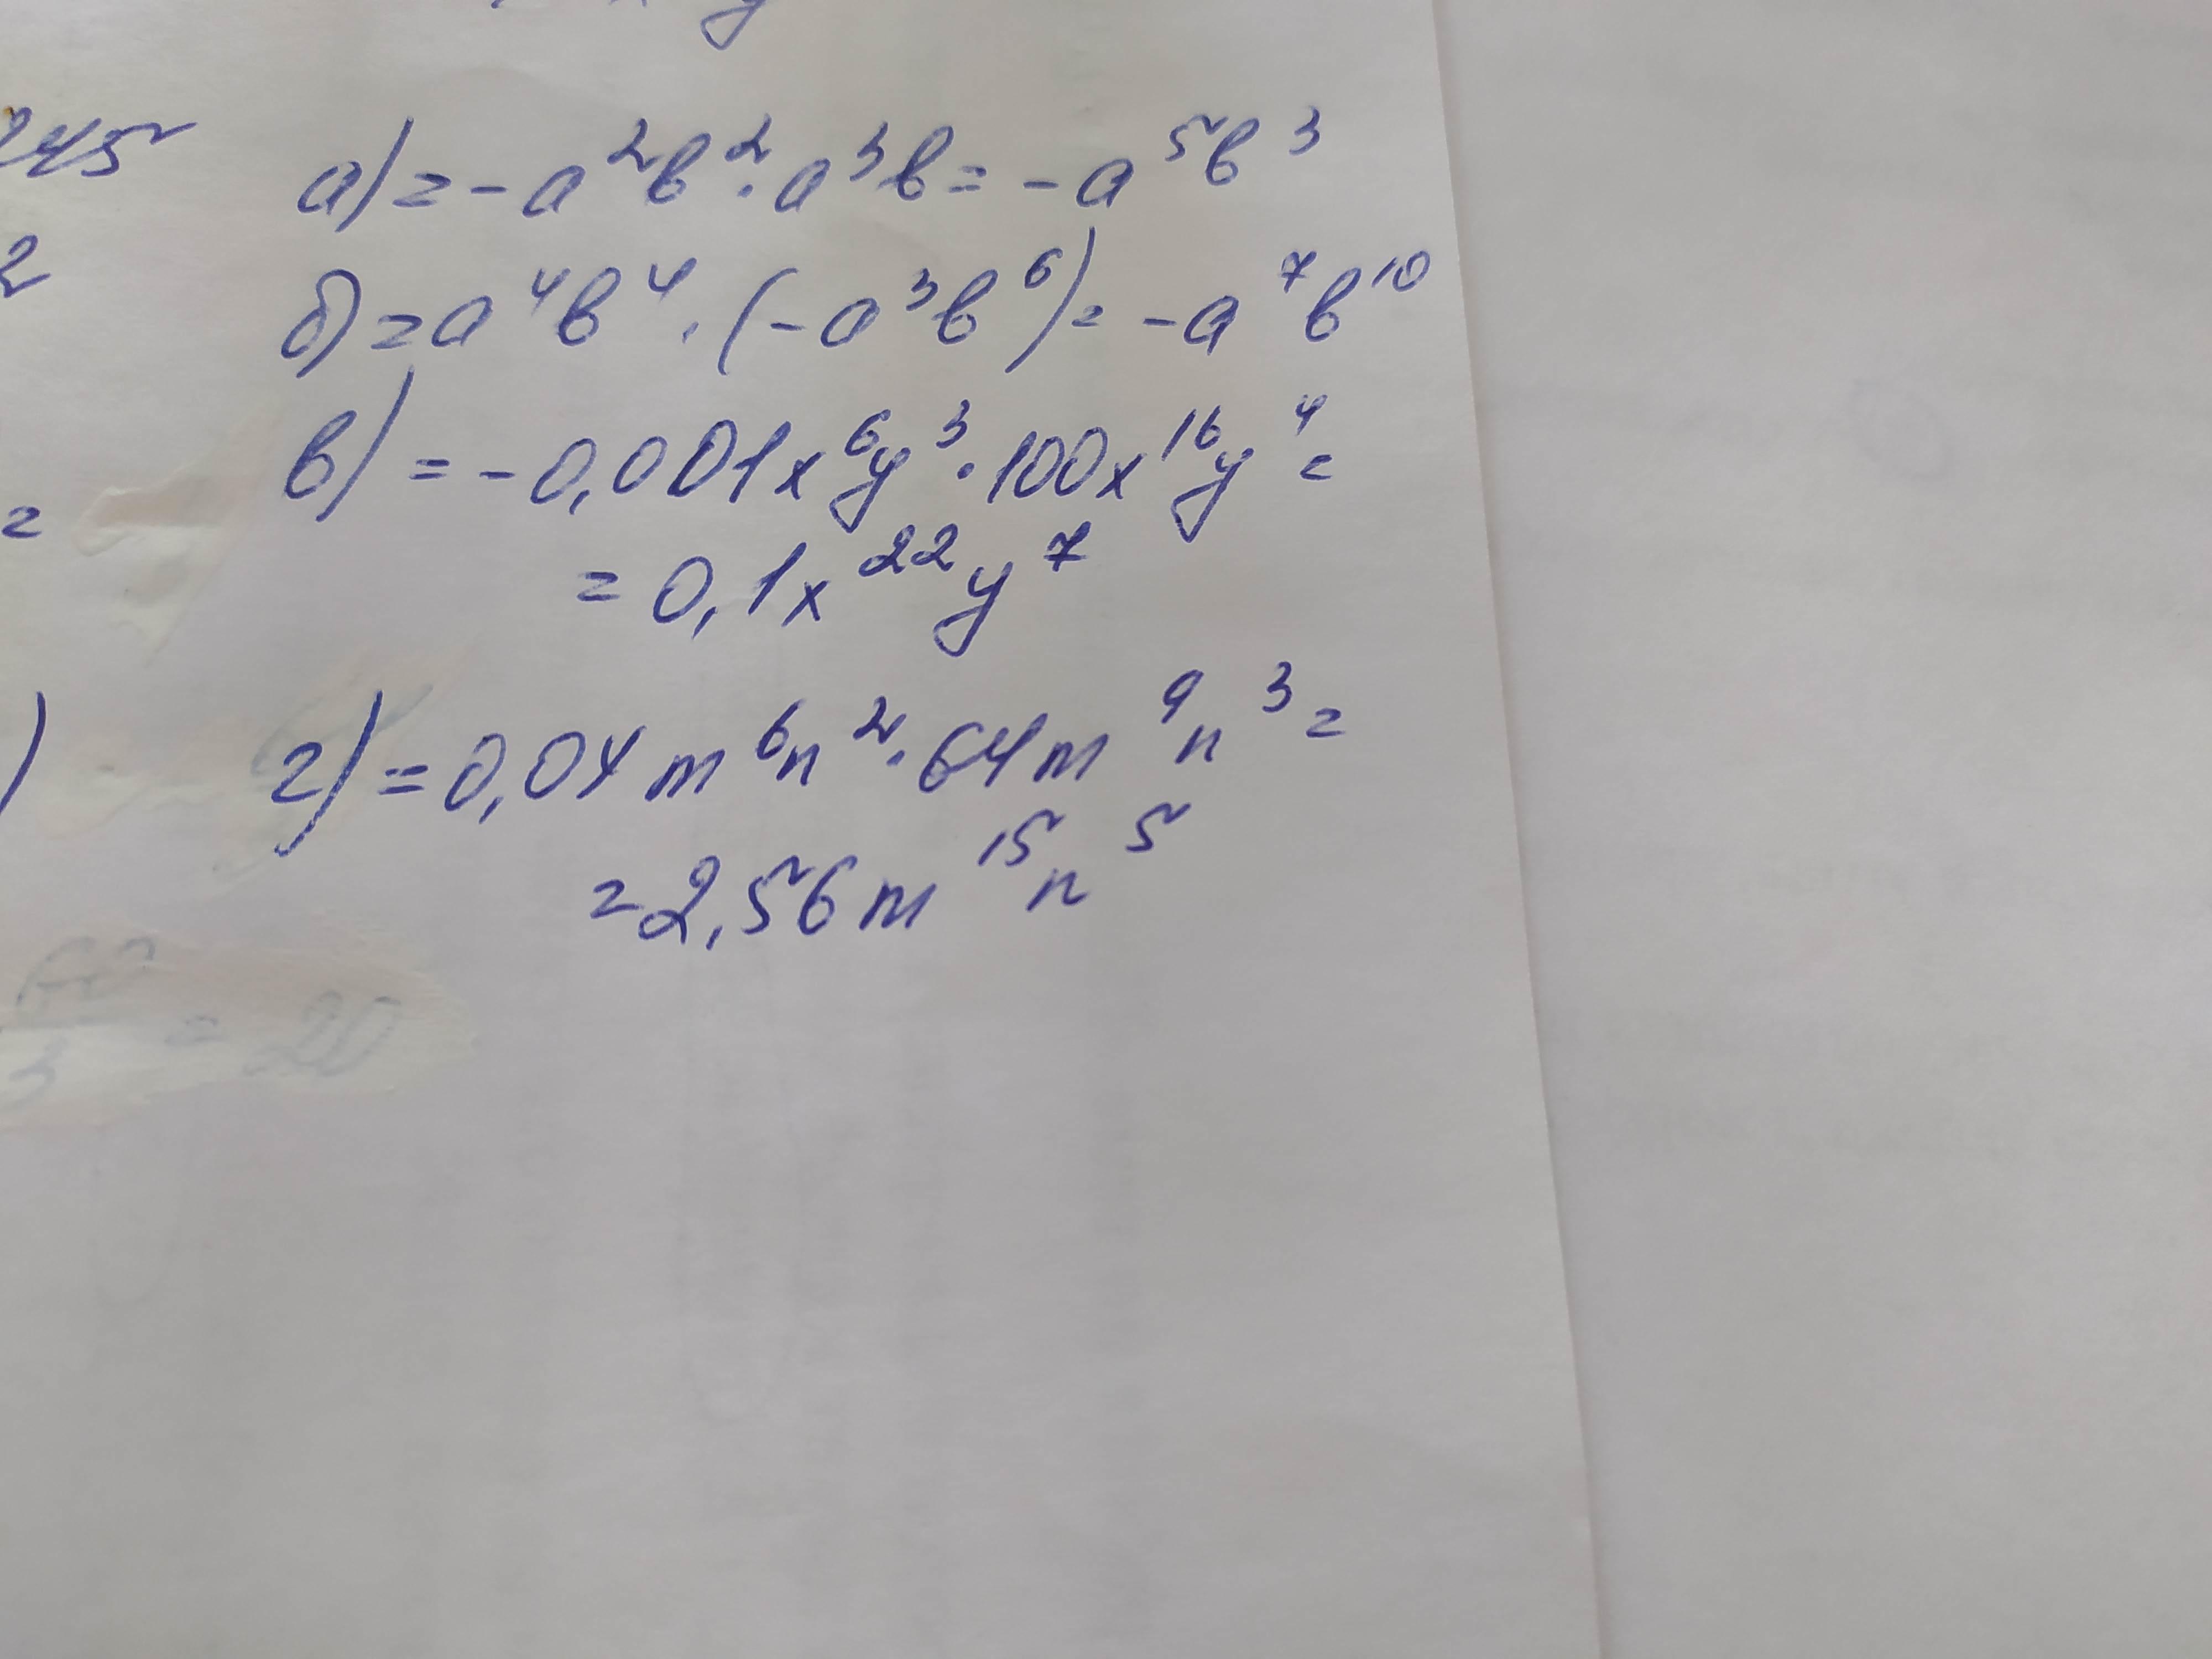 245
а) = -a²b²·a³b = -a⁵b³
2
б) = a⁴b⁴·(-a³b⁶) = -a⁷b¹⁰
в) = -0,001x⁶y³·100x¹⁶y⁴ =
=
= 0,1x²²y⁷
)
г) = 0,04m⁶n²·64m⁹n³ =
= 2,56m¹⁵n⁵
= 20
3